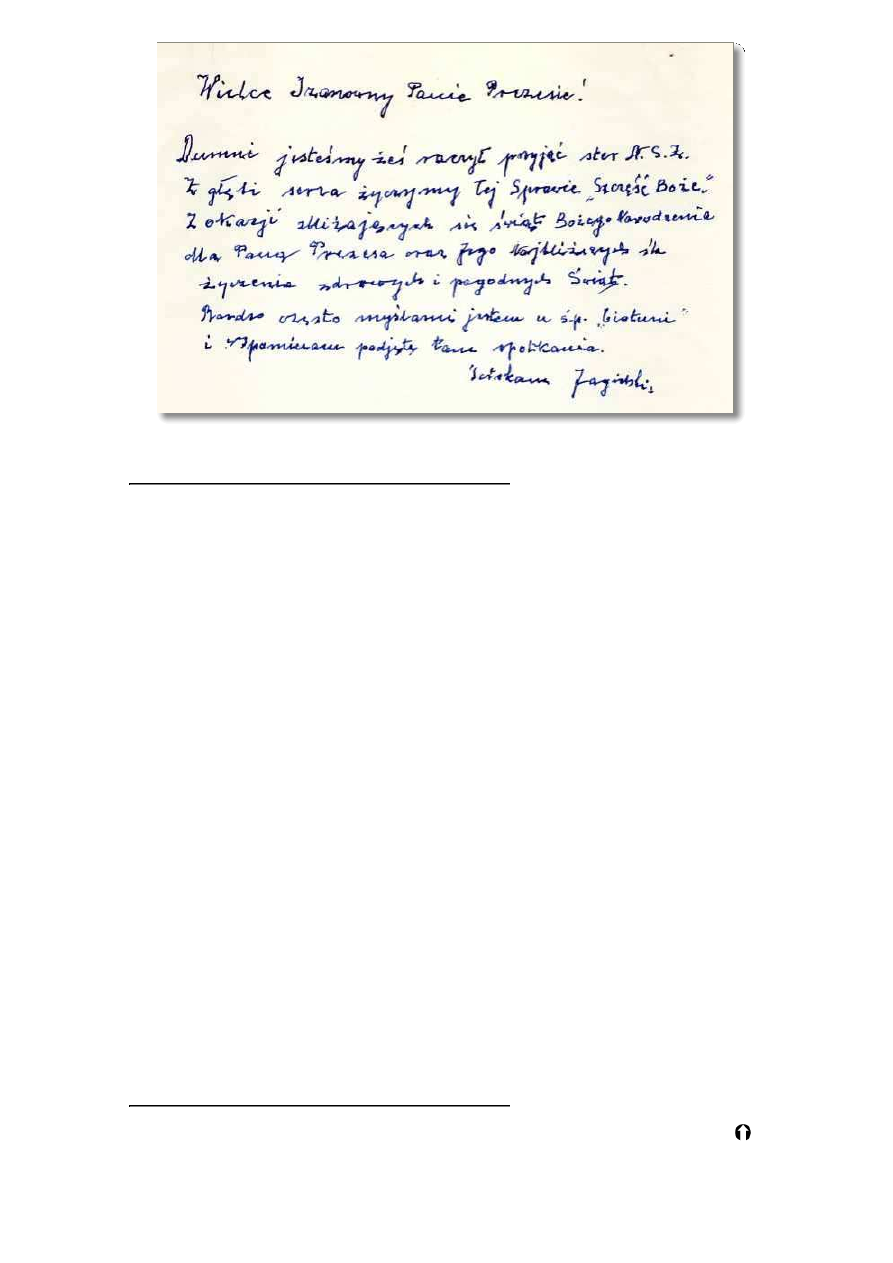 Wielce Szanowny Panie Prezesie!
Dumni jesteśmy żeś raczył przyjąć ster N.S.Z.
Z głębi serca życzymy tej Sprawie „Szczęść Boże.”
Z okazji zbliżających się świąt Bożego Narodzenia
dla Pana Prezesa oraz Jego Najbliższych ślę
życzenia zdrowych i pogodnych Świąt.
Bardzo często myślami jestem u śp.
i wspominam podjęte tam spotkania.